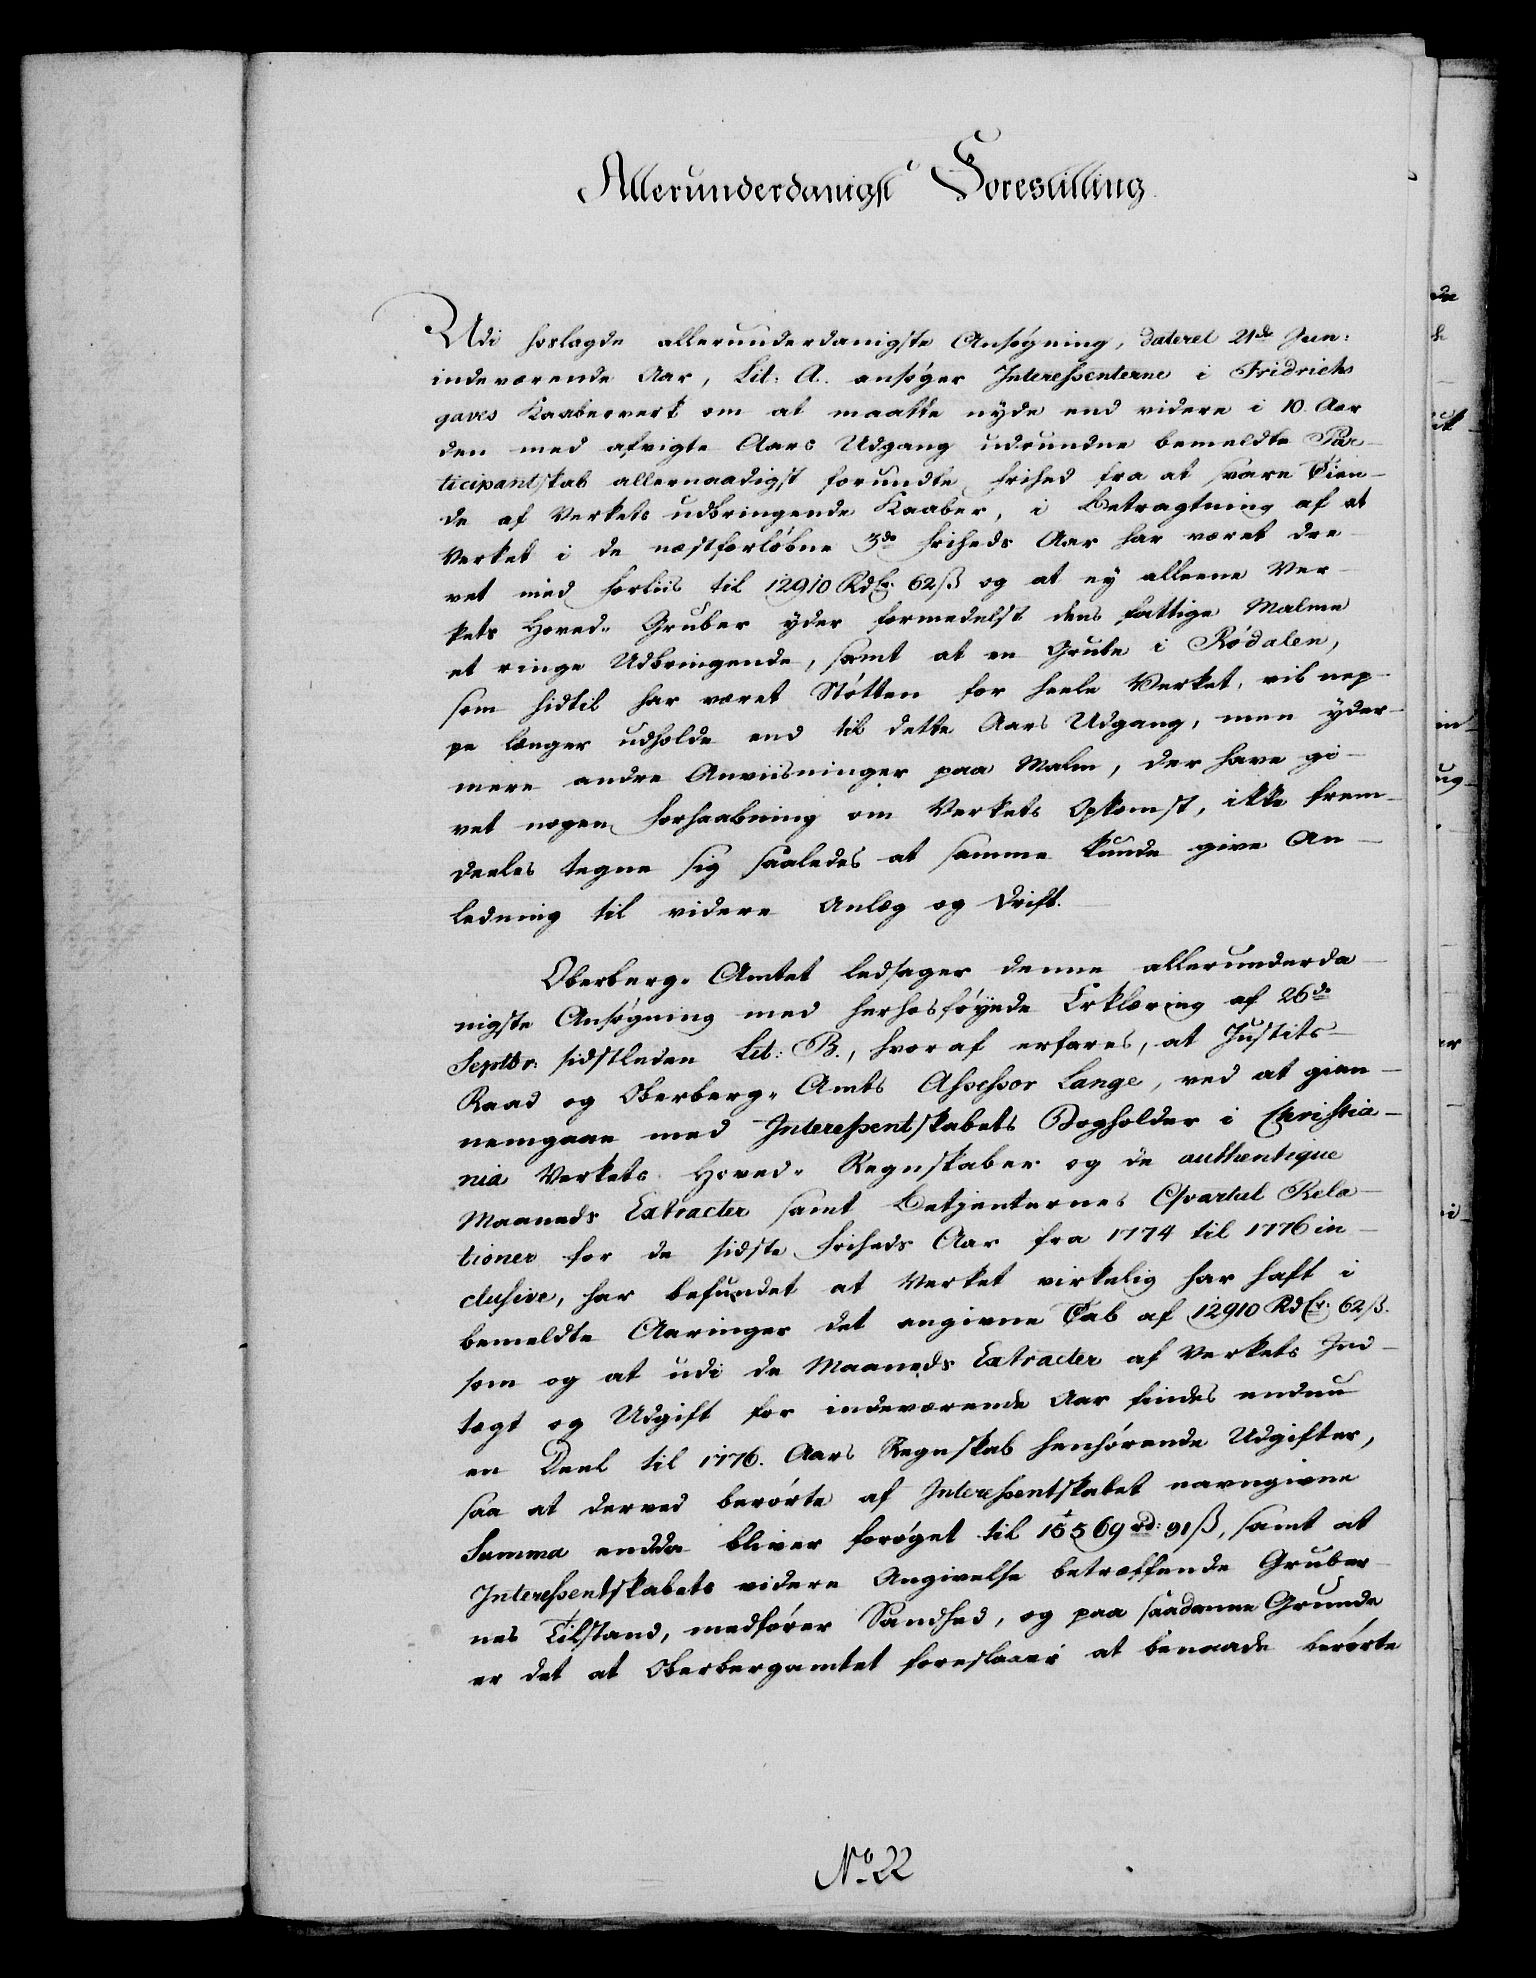 Allerunderdanigst Forestilling.
Udi hoslagde allerunderdanigste Ansøgning, dateret 21de Jun:
indeværende Aar, Lit: A. ansøger Interessenterne i Fridrichs
gaves Kaaberverk om at maatte nyde end videre i 10. Aar
den med afvigte Aars Udgang udrundne bemeldte Par-
ticipantskab allernaadigst forundte frihed fra at svare Tien-
de af Verkets udbringende Kaaber, i Betragtning af at
Verket i de næstforløbne 3de Friheds Aar har været dre-
vet med Forliis til 12910 Rdlr. 62 ß og at ey alleene Ver-
kets Hoved-Gruber yder formedelst dens fattige Malme
et ringe Udbringende, samt at en Grube i Rødalen,
som hidtil har været Støtten for heele Verket, vil nep-
pe længer udholde end til dette Aars Udgang, men yder-
mere andre Anviisninger paa Malm, der have gi-
vet nogen Forhaabning om Verkets Opkomst, ikke frem-
deeles tegne sig saaledes at samme kunde give An-
ledning til videre Anlæg og Drift.
Oberberg-Amtet ledsager denne allerunderda-
nigste Ansøgning med herhosføyede Erklæring af 26de
Septbr: sidstleden Lit: B., hvoraf erfares, at Justits-
Raad og Oberberg-Amts Assessor Lange, ved at gien-
nemgaae med Interessentskabets Bogholder i Christia-
nia Verkets Hoved-Regnskaber og de authentique
Maaneds Extracter samt Betjenternes Qvartal Rela-
tioner for de sidste Friheds Aar fra 1774 til 1776 in-
clusive, har befundet at Verket virkelig har haft i
bemeldte Aaringer det angivne Tab af 12910 Rdlr. 62 ß.
som og at udi de Maaneds Extracter af Verkets Ind-
tægt og Udgift for indeværende Aar findes endnu
en Deel til 1776. Aars Regnskab henhørende Udgifter,
saa at derved berørte af Interessentskabet navngivne
Summa endda bliver forøget til 15569 rd: 91 ß, samt at
Interessentskabets videre Angivelse betræffende Gruber-
nes Tilstand, medfører Sandhed, og paa saadanne Grunde
er det at Oberbergamtet foreslaaer at benaade berørte
No 22